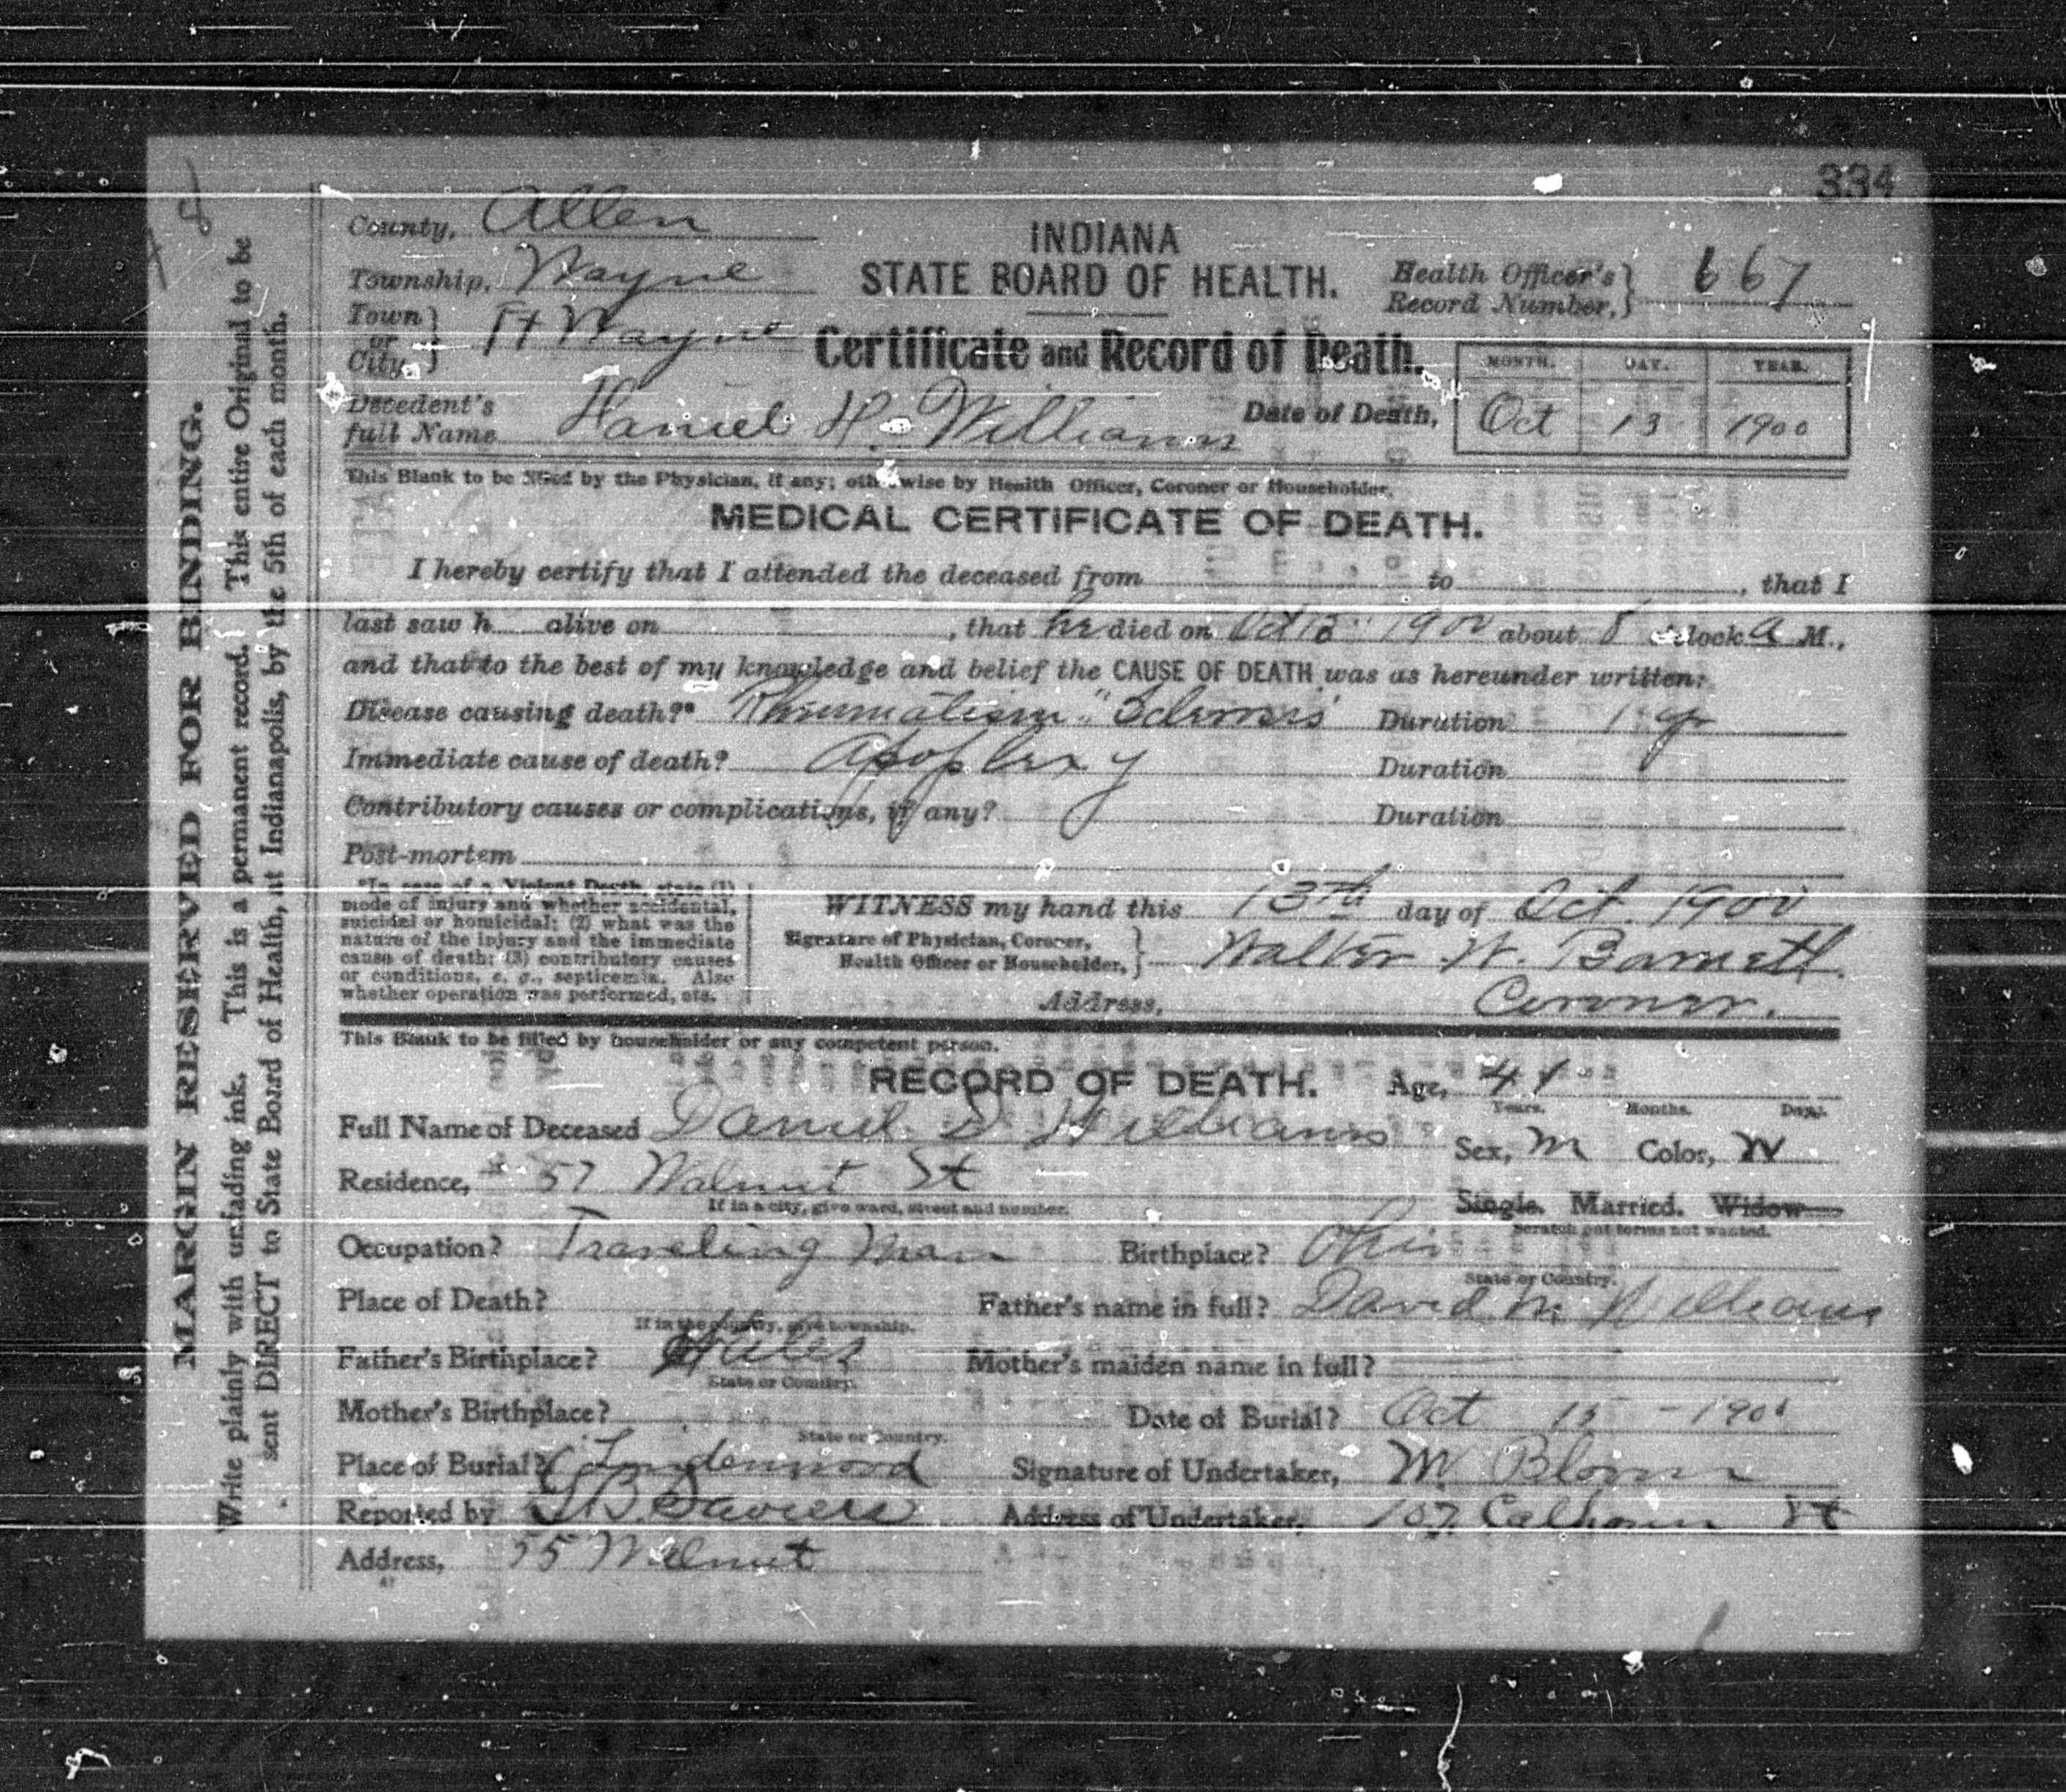 334
County, Allen
INDIANA
Township, Wayne
STATE BOARD OF HEALTH.
Health Officer's } 667
Record Number, }
Town or City } Ft Wayne
Certificate and Record of Death.
MONTH. DAY. YEAR.
Decedent's full Name Daniel H. Williams
Date of Death, Oct 13 1900
This Blank to be filled by the Physician, if any; otherwise by Health Officer, Coroner or Householder.
MEDICAL CERTIFICATE OF DEATH.
I hereby certify that I attended the deceased from to , that I
last saw h alive on , that he died on Oct 13" 1900 about 8 o'clock a M.,
and that to the best of my knowledge and belief the CAUSE OF DEATH was as hereunder written:
Disease causing death?* Rheumatism "Sclerosis" Duration 1 yr
Immediate cause of death? Apoplexy Duration
Contributory causes or complications, if any? Duration
Post-mortem
*In case of a Violent Death, state (1)
mode of injury and whether accidental,
suicidal or homicidal; (2) what was the
nature of the injury and the immediate
cause of death; (3) contributory causes
or conditions, e. g., septicemia. Also
whether operation was performed, etc.
WITNESS my hand this 13th day of Oct. 1900
Signature of Physician, Coroner,
Health Officer or Householder, } Walter W. Barnett.
Address, Coroner.
This Blank to be filled by householder or any competent person.
RECORD OF DEATH. Age, 41
Years. Months. Days.
Full Name of Deceased Daniel D Williams
Sex, M Color, W
Residence, 57 Walnut St
If in a city, give ward, street and number.
Single. Married. Widow
Scratch out terms not wanted.
Occupation? Traveling Man Birthplace? Ohio
State or Country.
Place of Death? Father's name in full? David M Williams
If in the country, give township.
Father's Birthplace? Wales Mother's maiden name in full?
State or Country.
Mother's Birthplace? Date of Burial? Oct 15 - 1900
State or Country.
Place of Burial? Lindenwood Signature of Undertaker, M Bloom
Reported by Davies Address of Undertaker, 107 Calhoun St
Address, 55 Walnut
MARGIN RESERVED FOR BINDING.
Write plainly with unfading ink. This is a permanent record. This entire Original to be
sent DIRECT to State Board of Health, at Indianapolis, by the 5th of each month.